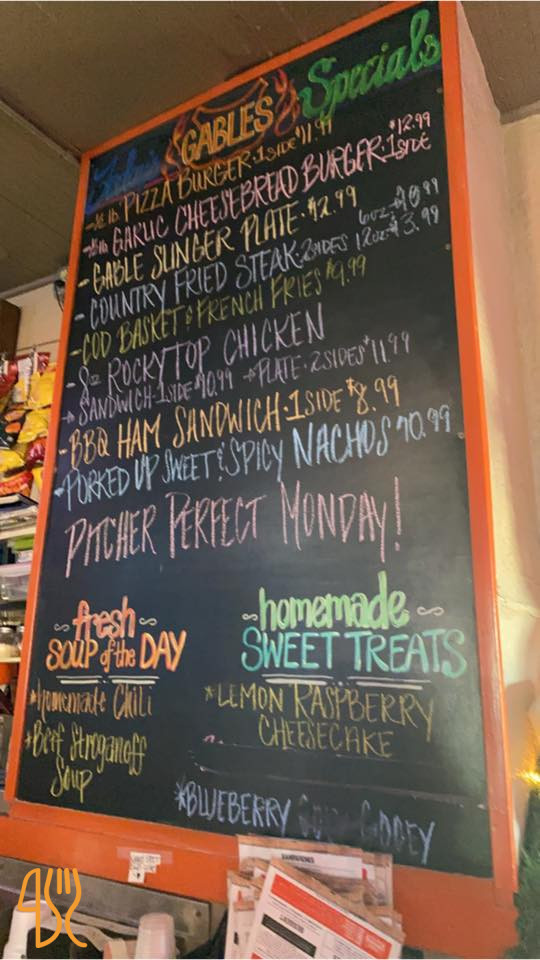 GABLES Specials
-½ lb. PIZZA BURGER·1 SIDE $11.99
-½ lb. GARLIC CHEESEBREAD BURGER·1 SIDE $12.99
- GABLE SLINGER PLATE·$12.99
- COUNTRY FRIED STEAK·2 SIDES 6oz·$10.99 12oz·$13.99
- COD BASKET & FRENCH FRIES $9.99
- 8oz ROCKYTOP CHICKEN
SANDWICH·1 SIDE $10.99 PLATE·2 SIDES $11.99
- BBQ HAM SANDWICH·1 SIDE $8.99
- PORKED UP SWEET & SPICY NACHOS $10.99
PITCHER PERFECT MONDAY!
~ fresh ~
SOUP of the DAY
*Homemade Chili
*Beef Stroganoff
Soup
~ homemade ~
SWEET TREATS
*LEMON RASPBERRY
CHEESECAKE
*BLUEBERRY GOOEY